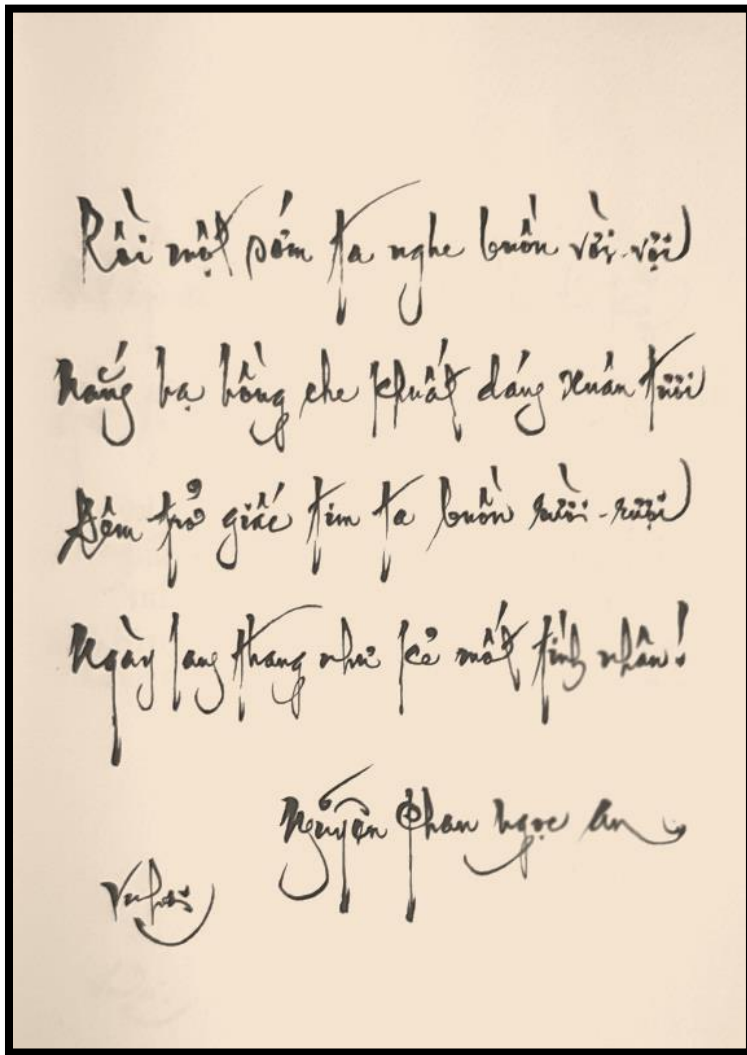 Rồi một sớm ta nghe buồn vời-vợi
Nắng hạ hồng che khuất dáng xuân tươi
Đêm trở giấc tim ta buồn rười-rượi
Ngày lang thang như kẻ mất tính nhân!
Nguyễn Phan Ngọc An